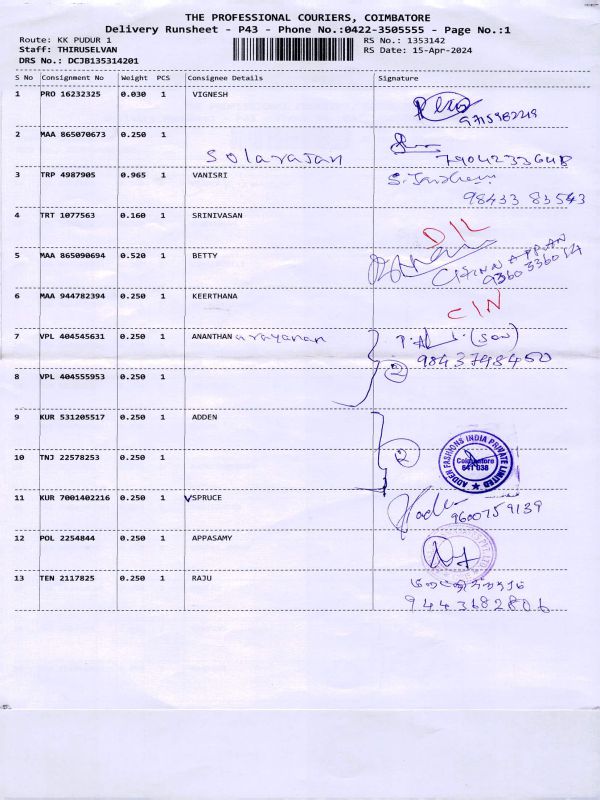 THE PROFESSIONAL COURIERS, COIMBATORE
Delivery Runsheet - P43 - Phone No.:0422-3505555 - Page No.:1
Route: KK PUDUR 1 RS No.: 1353142
Staff: THIRUSELVAN RS Date: 15-Apr-2024
DRS No.: DCJB135314201
S No Consignment No Weight PCS Consignee Details Signature
1 PRO 16232325 0.030 1 VIGNESH
2 MAA 865070673 0.250 1
Solarajan 7904233648
3 TRP 4987905 0.965 1 VANISRI
98433 83543
4 TRT 1077563 0.160 1 SRINIVASAN
D/L
5 MAA 865090694 0.520 1 BETTY
CHINNAPPAN
9360336014
6 MAA 944782394 0.250 1 KEERTHANA
C/N
7 VPL 404545631 0.250 1 ANANTHANarayanan (Son)
9843748450
8 VPL 404555953 0.250 1 2
9 KUR 531205517 0.250 1 ADDEN
ADDEN FASHIONS INDIA PRIVATE LIMITED
Coimbatore
641 038
10 TNJ 22578253 0.250 1 2
11 KUR 7001402216 0.250 1 SPRUCE
9600759139
12 POL 2254844 0.250 1 APPASAMY
13 TEN 2117825 0.250 1 RAJU
9443682806